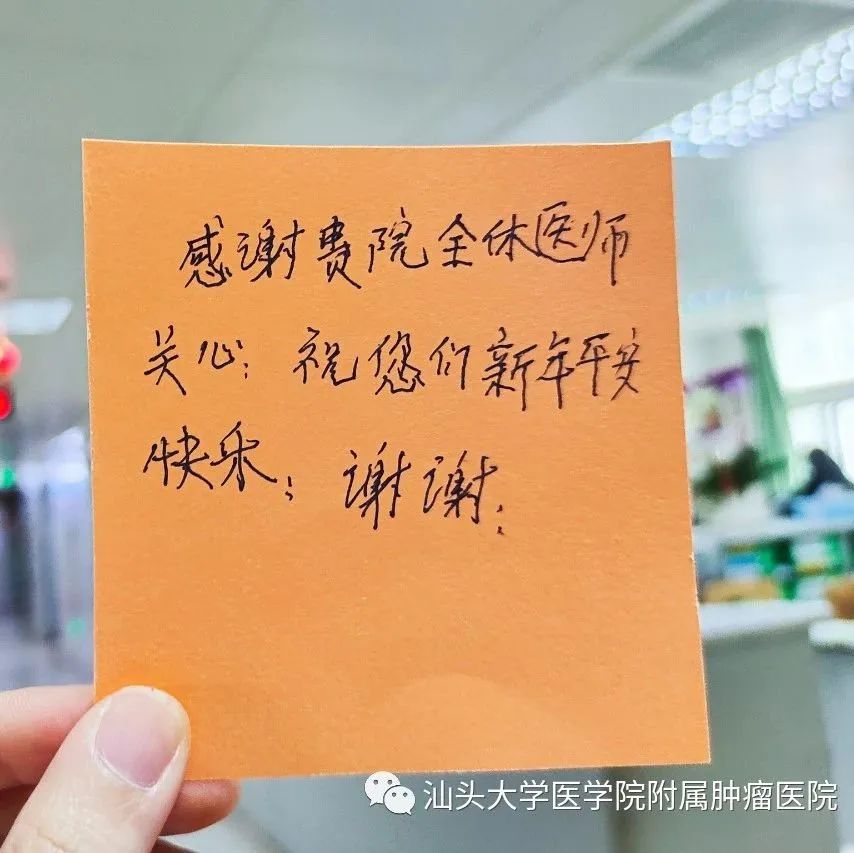 感谢贵院全体医师
关心；祝您们新年平安
快乐；谢谢；
汕头大学医学院附属肿瘤医院